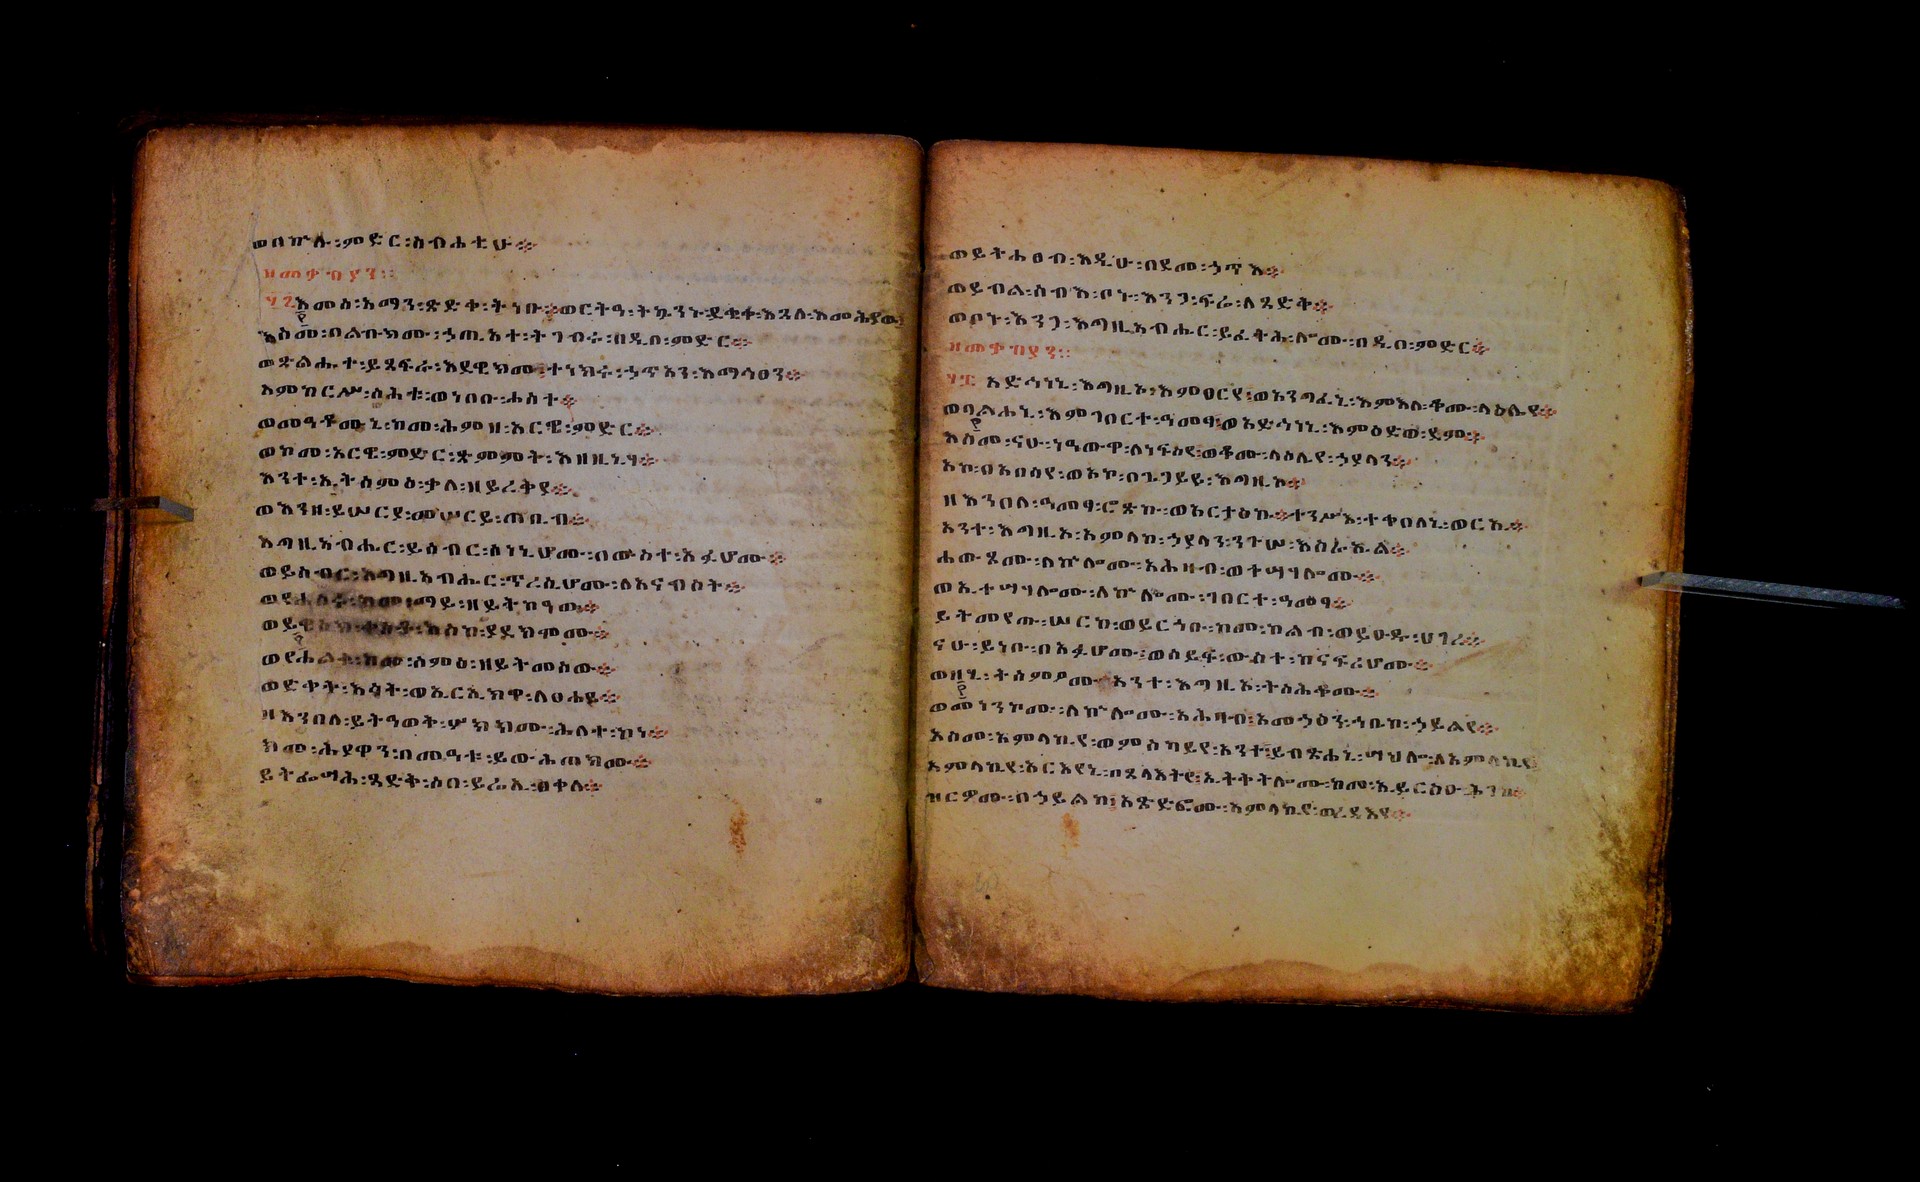 ወበኵሉ፡ምድር፡ስብሐቲሁ፨
ዘመቃብያን፡፡
፶፯እመሰ፡አማን፡ጽድቀ፡ትነቡ፡ወርትዓ፡ትኴንኑ፡ደቂቀ፡እጓለ፡እመሕያው፨
እስመ፡በልብክሙ፡ኃጢአተ፡ትገብሩ፡በዲበ፡ምድር፨
ወጽልሑተ፡ይጸፍራ፡እደዊክሙ፡ተነክሩ፡ኃጥአን፡እማኅፀን፨
እምከርሥ፡ስሕቱ፡ወነበቡ፡ሐሰተ፨
ወመዓቶሙኒ፡ከመ፡ሕምዘ፡አርዌ፡ምድር፨
ወከመ፡አርዌ፡ምድር፡ጽምምት፡እዘኒሃ፨
እንተ፡ኢትሰምዕ፡ቃለ፡ዘይረቅያ፨
ወእንዘ፡ይሠርያ፡መሠርይ፡ጠቢብ፨
እግዚአብሔር፡ይሰብር፡ስነኒሆሙ፡በውስተ፡አፉሆሙ፨
ወይሰብር፡እግዚአብሔር፡ጥረሲሆሙ፡ለአናብስት፨
ወየሐስሩ፡ከመ፡ማይ፡ዘይትከዓው፨
ወይዌስቅ፡ቀስቶ፡እስከ፡ያደክሞሙ፨
ወየሐልቁ፡ከመ፡ሰምዕ፡ዘይትመሰው፨
ወድቀት፡እሳት፡ወኢርኢክዋ፡ለፀሐይ፨
ዘእንበለ፡ይትዓወቅ፡ሦክክሙ፡ሕለተ፡ኮነ፨
ከመ፡ሕያዋን፡በመዓቱ፡ይውሕጠክሙ፨
ይትፌሣሕ፡ጻድቅ፡ሶበ፡ይሬኢ፡በቀለ፨
ወይትሐፀብ፡እዲሁ፡በደመ፡ኃጥእ፨
ወይብል፡ሰብእ፡ቦኑ፡እንጋ፡ፍሬ፡ለጻድቅ፨
ወቦኑ፡እንጋ፡እግዚአብሔር፡ይፈትሕ፡ሎሙ፡በዲበ፡ምድር፨
ዘመቃብያን፡፡
፶፰ አድኅነኒ፡እግዚኦ፡እምፀርየ፡ወአንግፈኒ፡እምእለ፡ቆሙ፡ላዕሌየ፨
ወባልሐኒ፡እምገበርተ፡ዓመፃ፡ወአድኅነኒ፡እምዕድወ፡ደም፨
እስመ፡ናሁ፡ነዓውዋ፡ለነፍስየ፡ወቆሙ፡ላዕሌየ፡ኃያላን፨
አኮ፡በአበሳየ፡ወአኮ፡በጌጋይየ፡እግዚኦ፨
ዘእንበለ፡ዓመፃ፡ሮጽኩ፡ወአርታዕኩ፨ተንሥእ፡ተቀበለኒ፡ወርኢ፨
አንተ፡እግዚኦ፡አምላከ፡ኃያላን፡ንጉሠ፡እስራኤል፨
ሐውጾሙ፡ለኵሎሙ፡አሕዛብ፡ወተሣሃሎሙ፨
ወኢተሣሃሎሙ፡ለኵሎሙ፡ገበርተ፡ዓመፃ፨
ይትመየጡ፡ሠርከ፡ወይርኅቡ፡ከመ፡ከልብ፡ወይዑዱ፡ሀገረ፨
ናሁ፡ይነቡ፡በአፉሆሙ፡ወሰይፍ፡ውስተ፡ከናፍሪሆሙ፨
ወዘሂ፡ትሰምዖሙ፡አንተ፡እግዚኦ፡ትስሕቆሙ፨
ወመነንኮሙ፡ለኵሎሙ፡አሕዛብ፡አመኃፅን፡ኀቤከ፡ኃይልየ፨
እስመ፡አምላኪየ፡ወምስካይየ፡አንተ፡ይብጽሐኒ፡ሣህሉ፡ለአምላኪየ፨
አምላኪየ፡አርእየኒ፡በጸላእትየ፡ኢትቅትሎሙ፡ከመ፡ኢይርስዑ፡ሕገከ፨
ዝርዎሙ፡በኃይልከ፡አጽድፎሙ፡አምላኪየ፡ወረዳእየ፨